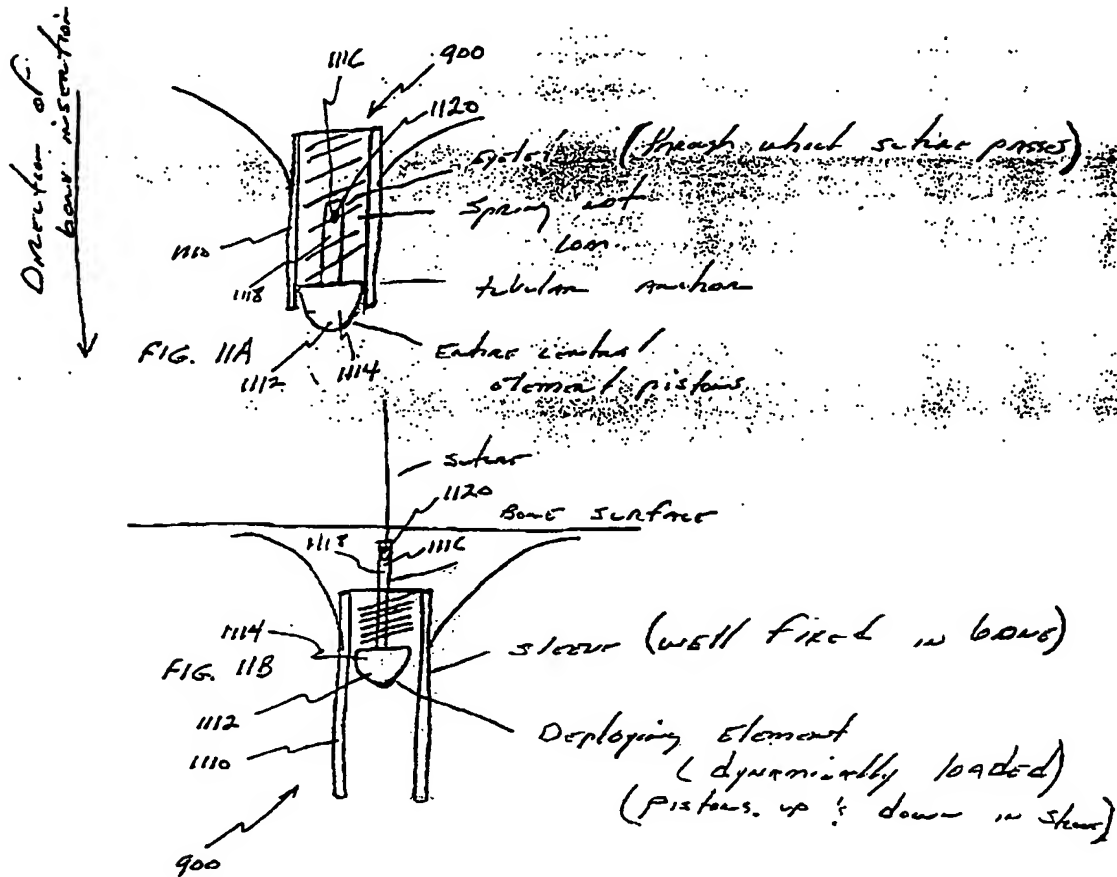 Direction of
bone insertion
1116
900
1120
Eyelet (through which suture passes)
Spring not
1110
1118
tubular anchor
FIG. 11A
1112
1114
Entire central
element pistons
suture
1120
Bone surface
1118
1116
1114
sleeve (well fixed in bone)
FIG. 11B
1112
Deploying Element
1110
(dynamically loaded)
(pistons up & down in
900